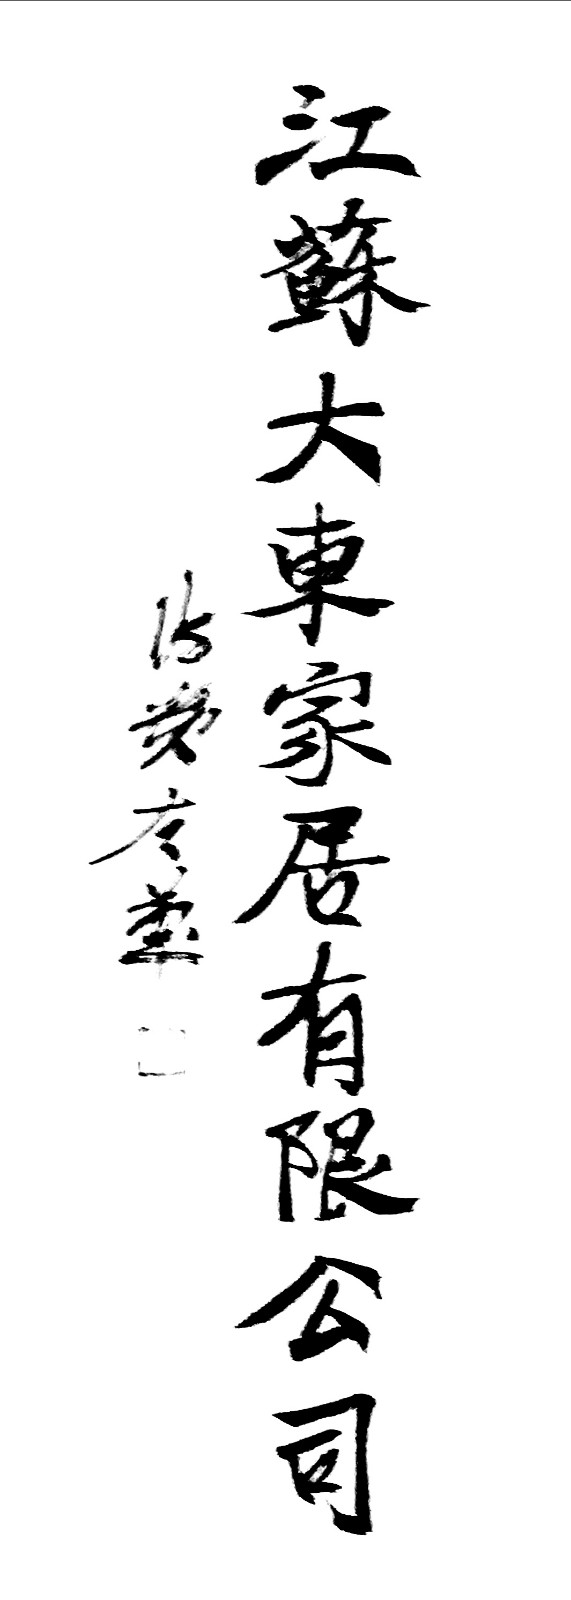 江蘇大東家居有限公司